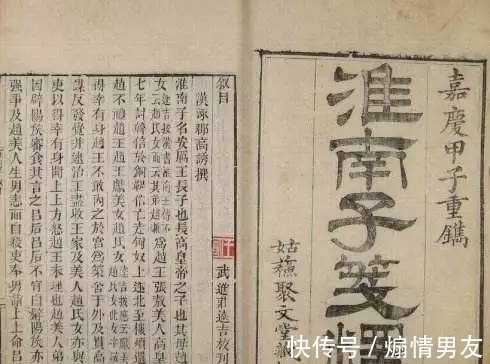 嘉慶甲子重鐫
淮南子箋
姑蘓聚文堂藏
叙目
漢涿郡高誘撰
武進莊逵吉校刊
淮南子名安厲王長子也長高皇帝之子也其母趙氏
女
為趙王張敖美人高皇帝
七年討韓信於銅鞮信亡走匈奴上遂北至樓煩還過
趙不禮趙王趙王獻美女趙氏女
得幸有身趙王不敢內之於宮為築舍於外及貫高等
謀反發覺并逮治王盡收王家及美人趙氏女亦與焉
吏以得幸有身聞上上方怒趙王未理也趙美人弟
因辟陽侯審食其言之呂后呂后不肯白辟陽侯亦不
強爭及趙美人生男恚而自殺吏奉男詣上上命呂后
快传号/煽情男友